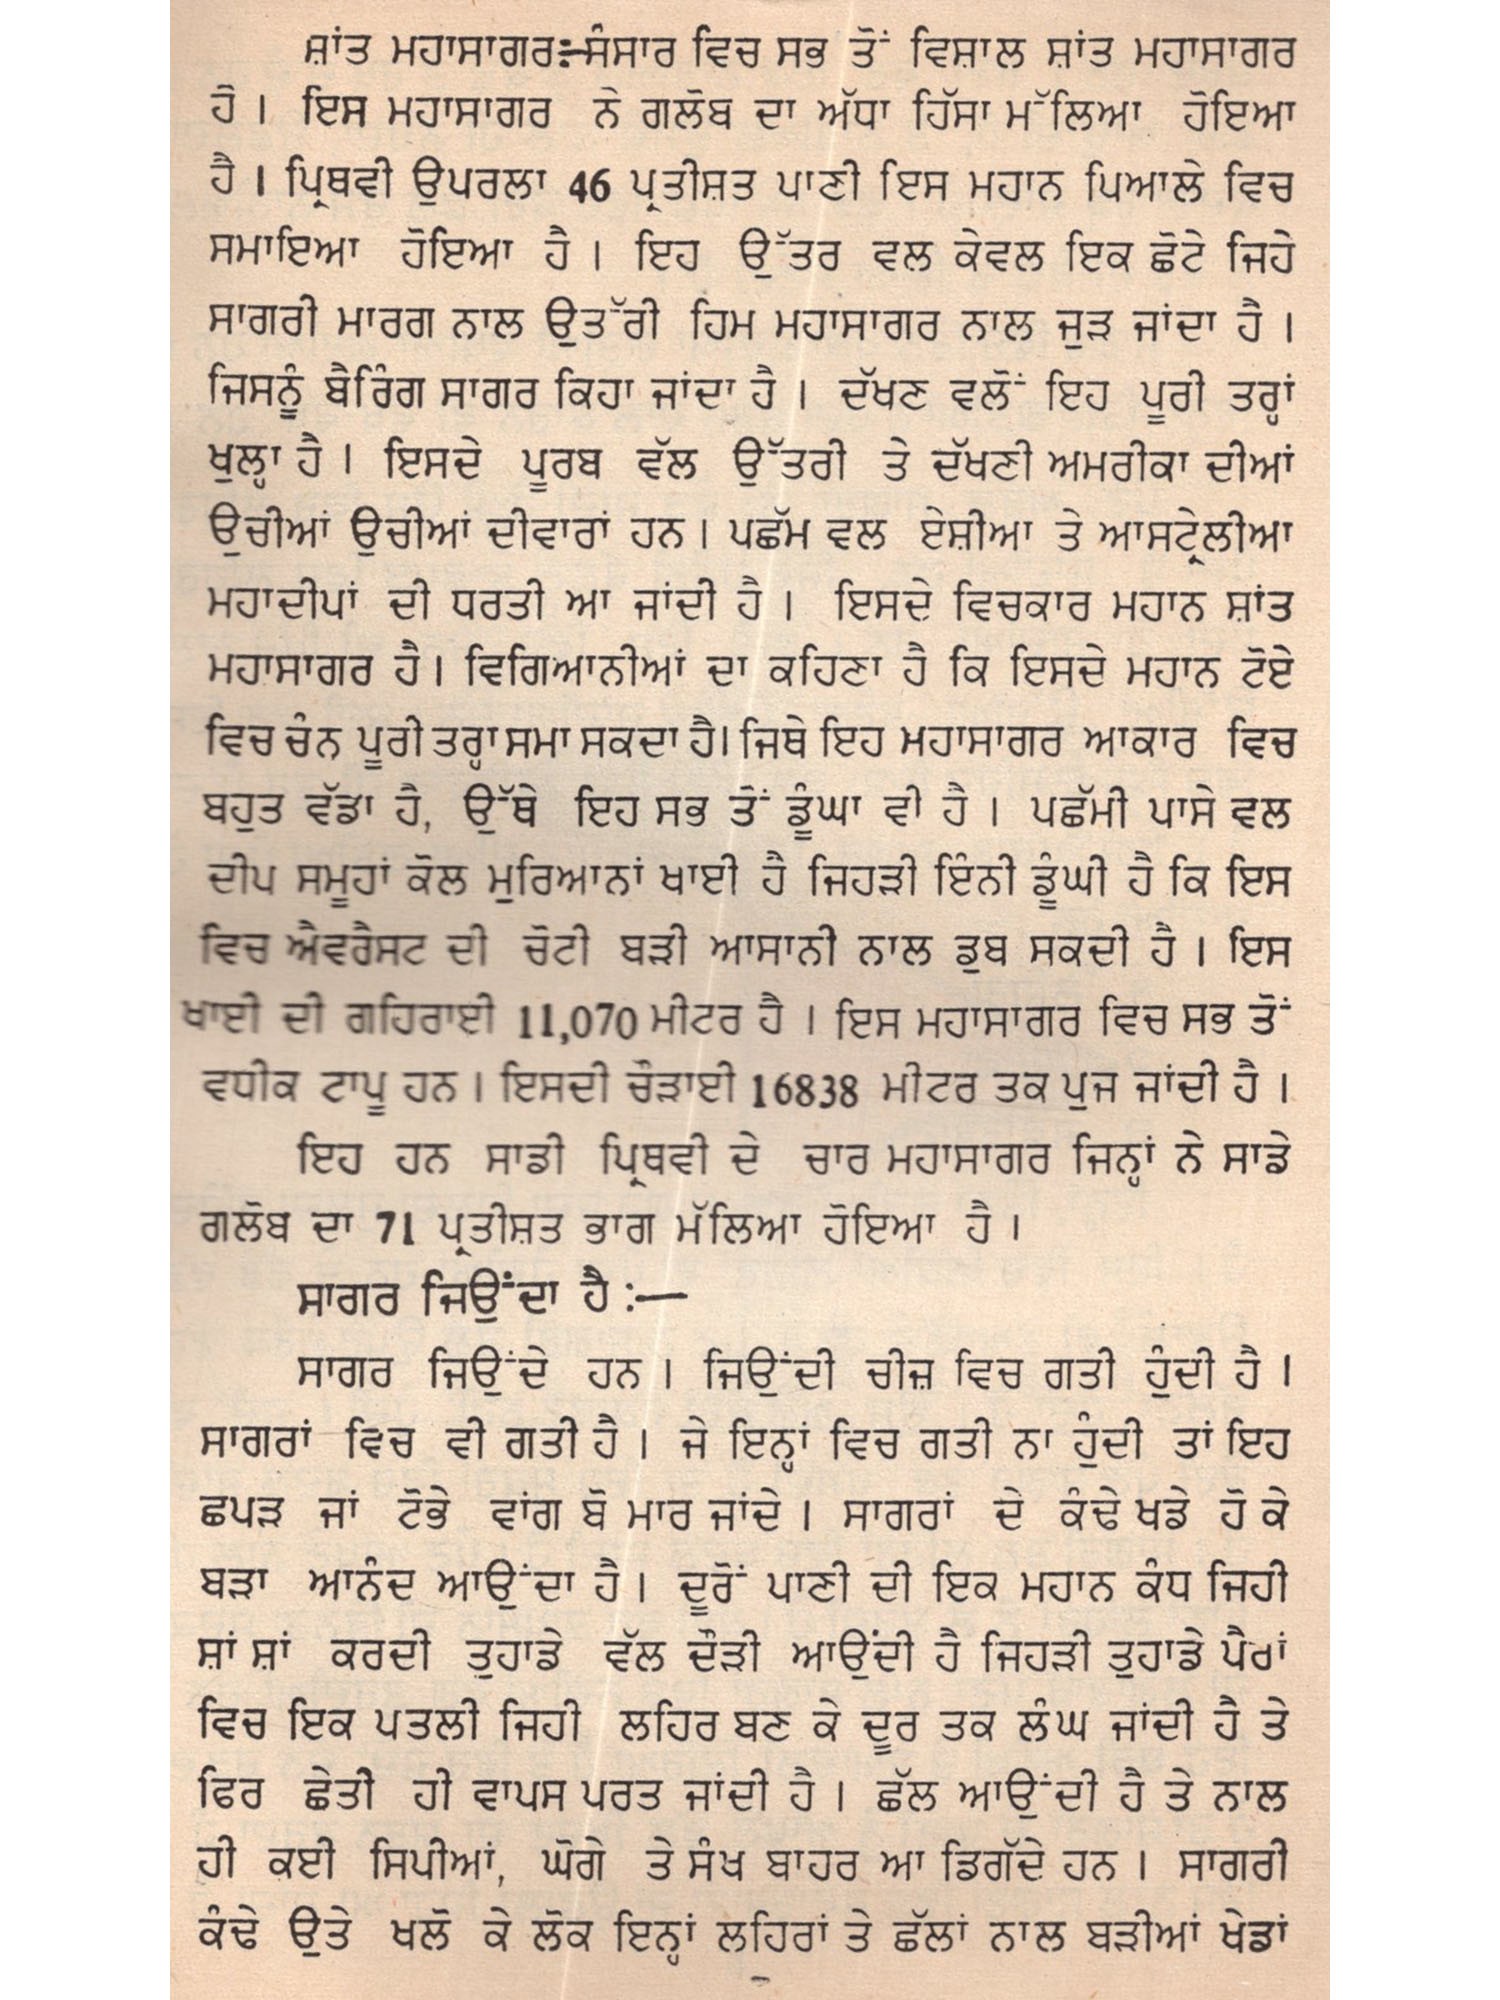 ਸ਼ਾਂਤ ਮਹਾਸਾਗਰ:–ਸੰਸਾਰ ਵਿਚ ਸਭ ਤੋਂ ਵਿਸ਼ਾਲ ਸ਼ਾਂਤ ਮਹਾਸਾਗਰ
ਹੈ । ਇਸ ਮਹਾਸਾਗਰ ਨੇ ਗਲੋਬ ਦਾ ਅੱਧਾ ਹਿੱਸਾ ਮੱਲਿਆ ਹੋਇਆ
ਹੈ । ਪ੍ਰਿਥਵੀ ਉਪਰਲਾ 46 ਪ੍ਰਤੀਸ਼ਤ ਪਾਣੀ ਇਸ ਮਹਾਨ ਪਿਆਲੇ ਵਿਚ
ਸਮਾਇਆ ਹੋਇਆ ਹੈ । ਇਹ ਉੱਤਰ ਵਲ ਕੇਵਲ ਇਕ ਛੋਟੇ ਜਿਹੇ
ਸਾਗਰੀ ਮਾਰਗ ਨਾਲ ਉਤੱਰੀ ਹਿਮ ਮਹਾਸਾਗਰ ਨਾਲ ਜੁੜ ਜਾਂਦਾ ਹੈ ।
ਜਿਸਨੂੰ ਬੈਰਿੰਗ ਸਾਗਰ ਕਿਹਾ ਜਾਂਦਾ ਹੈ । ਦੱਖਣ ਵਲੋਂ ਇਹ ਪੂਰੀ ਤਰ੍ਹਾਂ
ਖੁਲ੍ਹਾ ਹੈ । ਇਸਦੇ ਪੂਰਬ ਵੱਲ ਉੱਤਰੀ ਤੇ ਦੱਖਣੀ ਅਮਰੀਕਾ ਦੀਆਂ
ਉਚੀਆਂ ਉਚੀਆਂ ਦੀਵਾਰਾਂ ਹਨ। ਪਛੱਮ ਵਲ ਏਸ਼ੀਆ ਤੇ ਆਸਟ੍ਰੇਲੀਆ
ਮਹਾਦੀਪਾਂ ਦੀ ਧਰਤੀ ਆ ਜਾਂਦੀ ਹੈ । ਇਸਦੇ ਵਿਚਕਾਰ ਮਹਾਨ ਸ਼ਾਂਤ
ਮਹਾਸਾਗਰ ਹੈ। ਵਿਗਿਆਨੀਆਂ ਦਾ ਕਹਿਣਾ ਹੈ ਕਿ ਇਸਦੇ ਮਹਾਨ ਟੋਏ
ਵਿਚ ਚੰਨ ਪੂਰੀ ਤਰ੍ਹਾ ਸਮਾ ਸਕਦਾ ਹੈ। ਜਿਥੇ ਇਹ ਮਹਾਸਾਗਰ ਆਕਾਰ ਵਿਚ
ਬਹੁਤ ਵੱਡਾ ਹੈ, ਉੱਥੇ ਇਹ ਸਭ ਤੋਂ ਡੂੰਘਾ ਵੀ ਹੈ । ਪਛੱਮੀ ਪਾਸੇ ਵਲ
ਦੀਪ ਸਮੂਹਾਂ ਕੋਲ ਮੁਰਿਆਨਾਂ ਖਾਈ ਹੈ ਜਿਹੜੀ ਇੰਨੀ ਡੂੰਘੀ ਹੈ ਕਿ ਇਸ
ਵਿਚ ਐਵਰੈਸਟ ਦੀ ਚੋਟੀ ਬੜੀ ਆਸਾਨੀ ਨਾਲ ਡੁਬ ਸਕਦੀ ਹੈ । ਇਸ
ਖਾਈ ਦੀ ਗਹਿਰਾਈ 11,070 ਮੀਟਰ ਹੈ । ਇਸ ਮਹਾਸਾਗਰ ਵਿਚ ਸਭ ਤੋਂ
ਵਧੀਕ ਟਾਪੂ ਹਨ । ਇਸਦੀ ਚੌੜਾਈ 16838 ਮੀਟਰ ਤਕ ਪੁਜ ਜਾਂਦੀ ਹੈ ।
ਇਹ ਹਨ ਸਾਡੀ ਪ੍ਰਿਥਵੀ ਦੇ ਚਾਰ ਮਹਾਸਾਗਰ ਜਿਨ੍ਹਾਂ ਨੇ ਸਾਡੇ
ਗਲੋਬ ਦਾ 71 ਪ੍ਰਤੀਸ਼ਤ ਭਾਗ ਮੱਲਿਆ ਹੋਇਆ ਹੈ ।
ਸਾਗਰ ਜਿਉਂਦਾ ਹੈ :—
ਸਾਗਰ ਜਿਉਂਦੇ ਹਨ । ਜਿਉਂਦੀ ਚੀਜ਼ ਵਿਚ ਗਤੀ ਹੁੰਦੀ ਹੈ ।
ਸਾਗਰਾਂ ਵਿਚ ਵੀ ਗਤੀ ਹੈ । ਜੇ ਇਨ੍ਹਾਂ ਵਿਚ ਗਤੀ ਨਾ ਹੁੰਦੀ ਤਾਂ ਇਹ
ਛਪੜ ਜਾਂ ਟੋਭੇ ਵਾਂਗ ਬੋ ਮਾਰ ਜਾਂਦੇ । ਸਾਗਰਾਂ ਦੇ ਕੰਢੇ ਖਡੇ ਹੋ ਕੇ
ਬੜਾ ਆਨੰਦ ਆਉਂਦਾ ਹੈ । ਦੂਰੋਂ ਪਾਣੀ ਦੀ ਇਕ ਮਹਾਨ ਕੰਧ ਜਿਹੀ
ਸ਼ਾਂ ਸ਼ਾਂ ਕਰਦੀ ਤੁਹਾਡੇ ਵੱਲ ਦੌੜੀ ਆਉਂਦੀ ਹੈ ਜਿਹੜੀ ਤੁਹਾਡੇ ਪੈਰਾਂ
ਵਿਚ ਇਕ ਪਤਲੀ ਜਿਹੀ ਲਹਿਰ ਬਣ ਕੇ ਦੂਰ ਤਕ ਲੰਘ ਜਾਂਦੀ ਹੈ ਤੇ
ਫਿਰ ਛੇਤੀ ਹੀ ਵਾਪਸ ਪਰਤ ਜਾਂਦੀ ਹੈ । ਛੱਲ ਆਉਂਦੀ ਹੈ ਤੇ ਨਾਲ
ਹੀ ਕਈ ਸਿਪੀਆਂ, ਘੋਗੇ ਤੇ ਸੰਖ ਬਾਹਰ ਆ ਡਿਗੱਦੇ ਹਨ । ਸਾਗਰੀ
ਕੰਢੇ ਉਤੇ ਖਲੋ ਕੇ ਲੋਕ ਇਨ੍ਹਾਂ ਲਹਿਰਾਂ ਤੇ ਛੱਲਾਂ ਨਾਲ ਬੜੀਆਂ ਖੇਡਾਂ